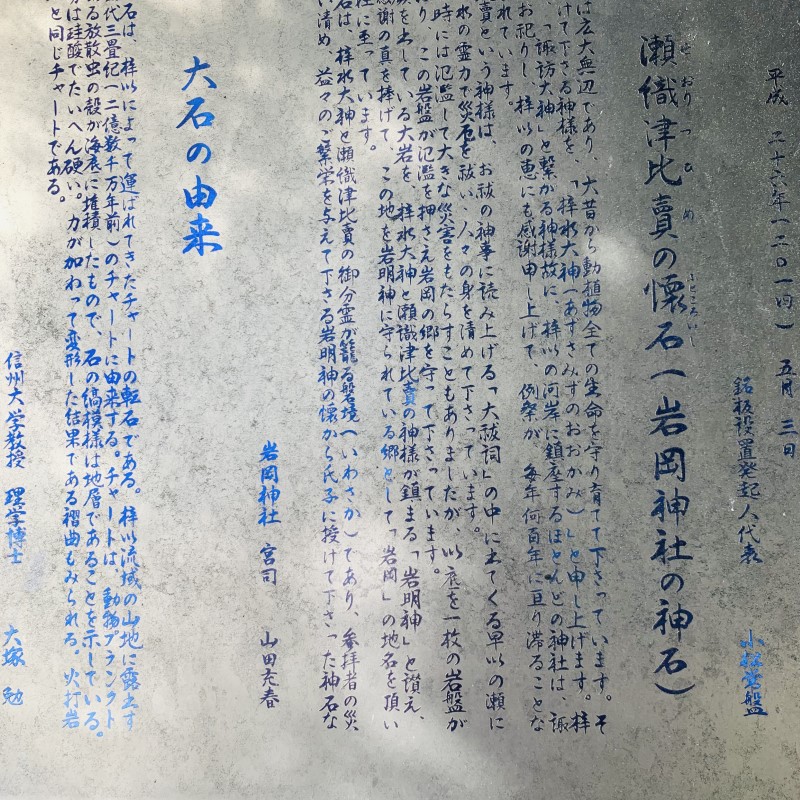 瀬織津比賣の懐石(岩岡神社の神石)
せおりつひめ
ふところいし
は広大無辺であり、大昔から動植物全ての生命を守り育てて下さっています。そ
けて下さる神様を、「梓水大神(あずさみずのおおかみ)」と申し上げます。梓
、「諏訪大神」と繋がる神様故に、梓川の河岸に鎮座するほとんどの神社は、諏
お祀りし、梓川の恵にも感謝申し上げて、例祭が、毎年何百年に亘り滞ることな
れています。
賣という神様は、お祓の神事に読み上げる「大祓詞」の中に出てくる早川の瀬に
水の霊力で災厄を祓い、人々の身を清めて下さっています。
時には氾濫して大きな災害をもたらすこともありましたが、川底を一枚の岩盤が
り、この岩盤が氾濫を押さえ岩岡の郷を守って下さっています。
を出している大岩を、梓水大神と瀬織津比賣の神様が鎮まる「岩明神」と讃え、
感謝の真を捧げて、この地を岩明神に守られている郷として「岩岡」の地名を頂い
に至っています。
石は、梓水大神と瀬織津比賣の御分霊が籠る磐境(いわさか)であり、参拝者の災
い清め、益々のご繁栄を与えて下さる岩明神の懐から氏子に授けて下さった神石な
岩岡神社 宮司 山田充春
大石の由来
石は、梓川によって運ばれてきたチャートの転石である。梓川流域の山地に露出す
代三畳紀(二億数千万年前)のチャートに由来する。チャートは、動物プランクト
る放散虫の殻が海底に堆積したもので、石の縞模様は地層であることを示している。
分は珪酸でたいへん硬い。力が加わって変形した結果である褶曲もみられる。火打岩
と同じチャートである。
信州大学教授 理学博士 大塚勉
平成 二十六年(二〇一四) 五月 三日
銘板設置発起人代表